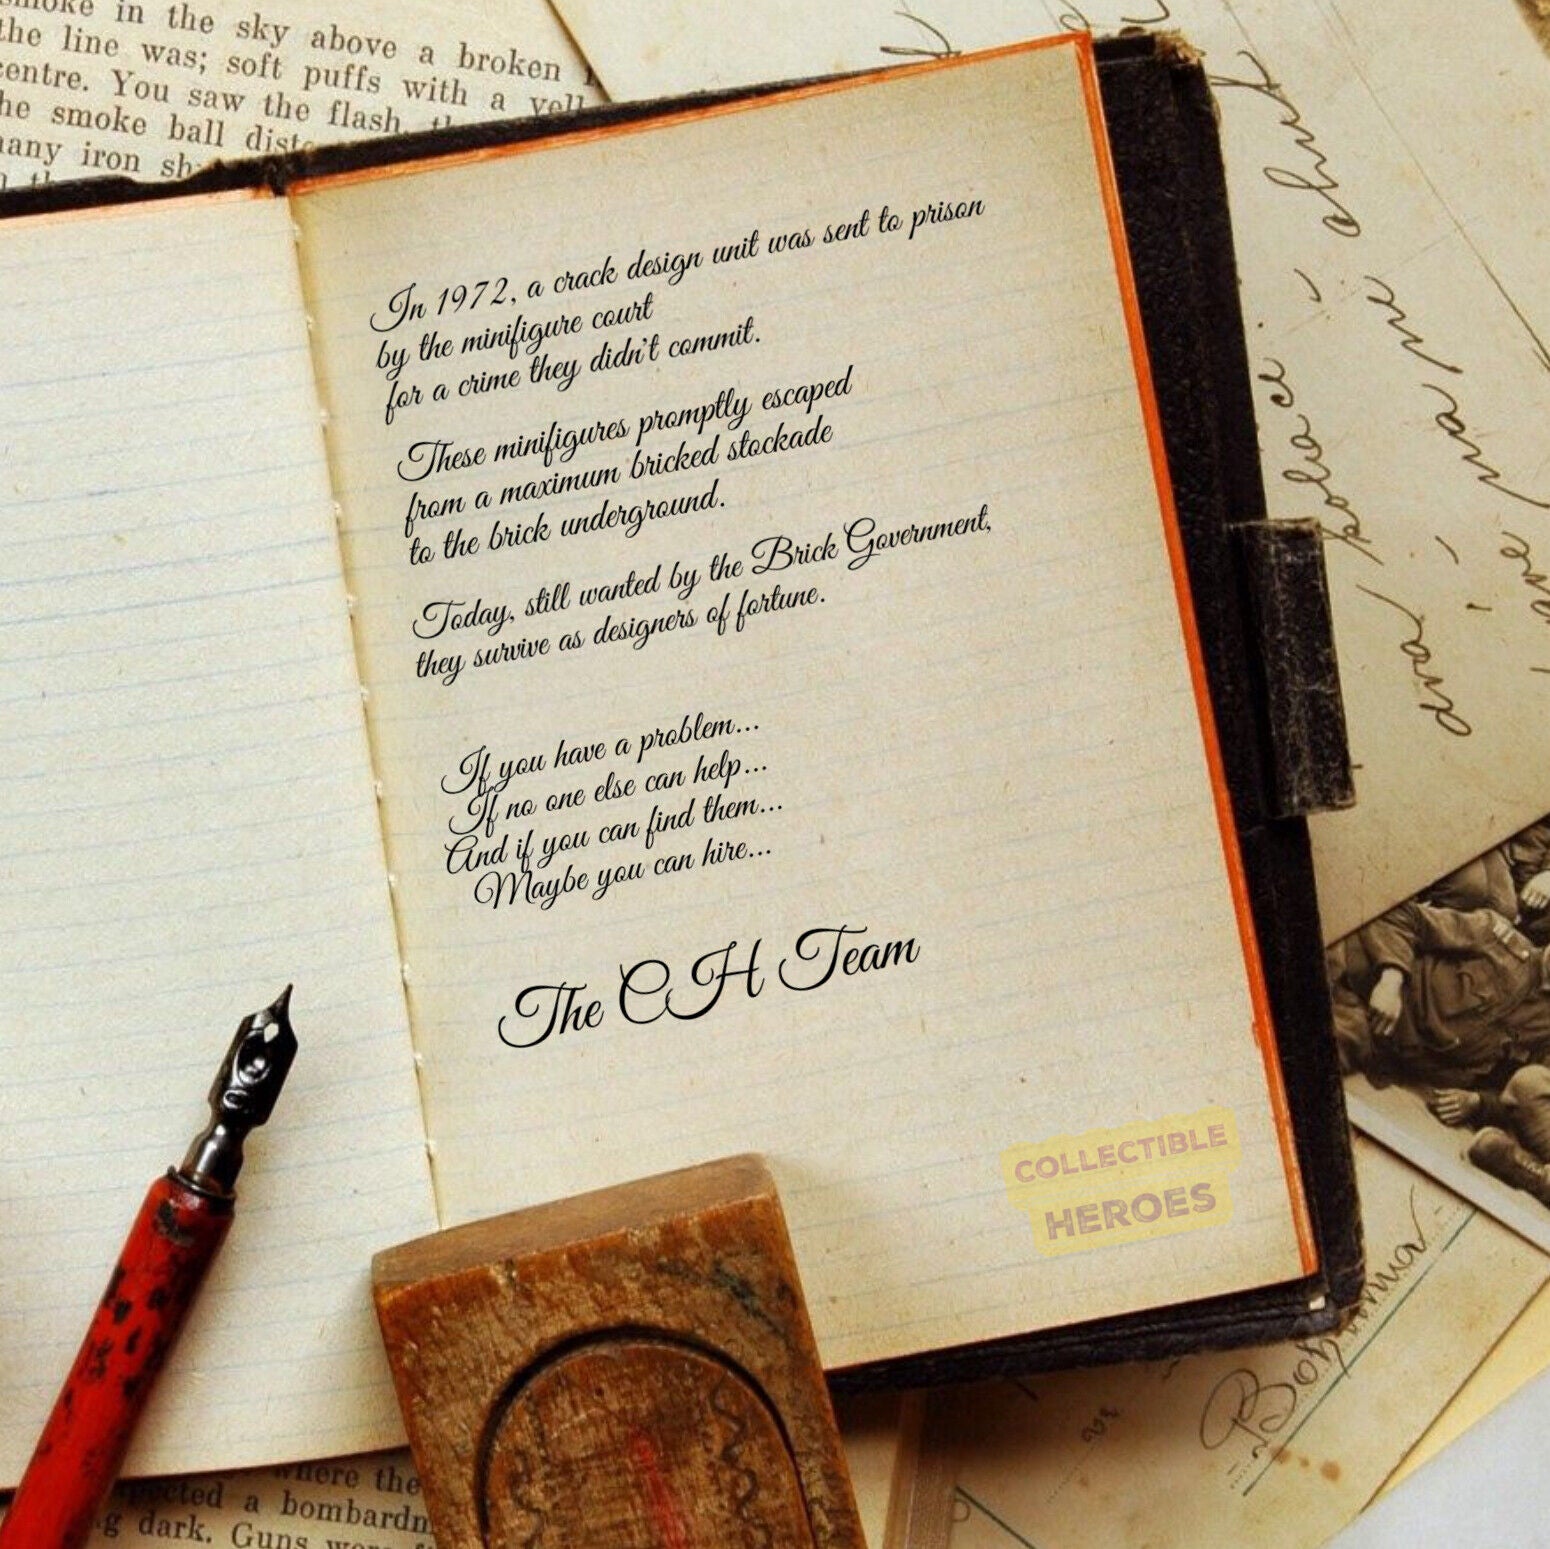 smoke in the sky above a broken
the line was; soft puffs with a yell
centre. You saw the flash,
the smoke ball
many iron
In 1972, a crack design unit was sent to prison
by the minifigure court
for a crime they didn't commit.
These minifigures promptly escaped
from a maximum bricked stockade
to the brick underground.
Today, still wanted by the Brick Government,
they survive as designers of fortune.
If you have a problem...
If no one else can help...
And if you can find them...
Maybe you can hire...
The CH Team
COLLECTIBLE
HEROES
where the
a bombardm
dark. Guns were